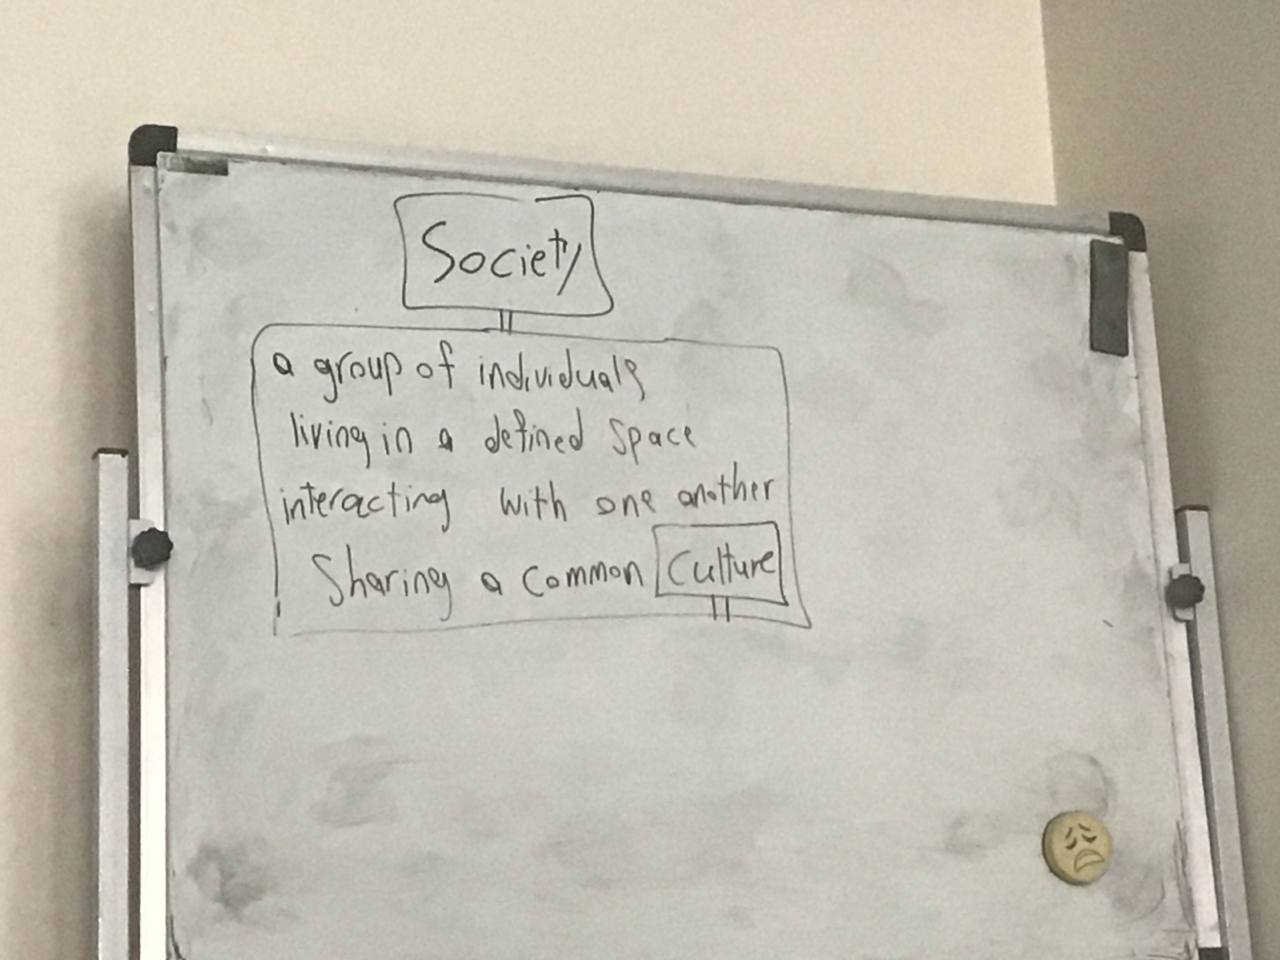 Society
a group of individuals
living in a defined space
interacting with one another
Sharing a common Culture